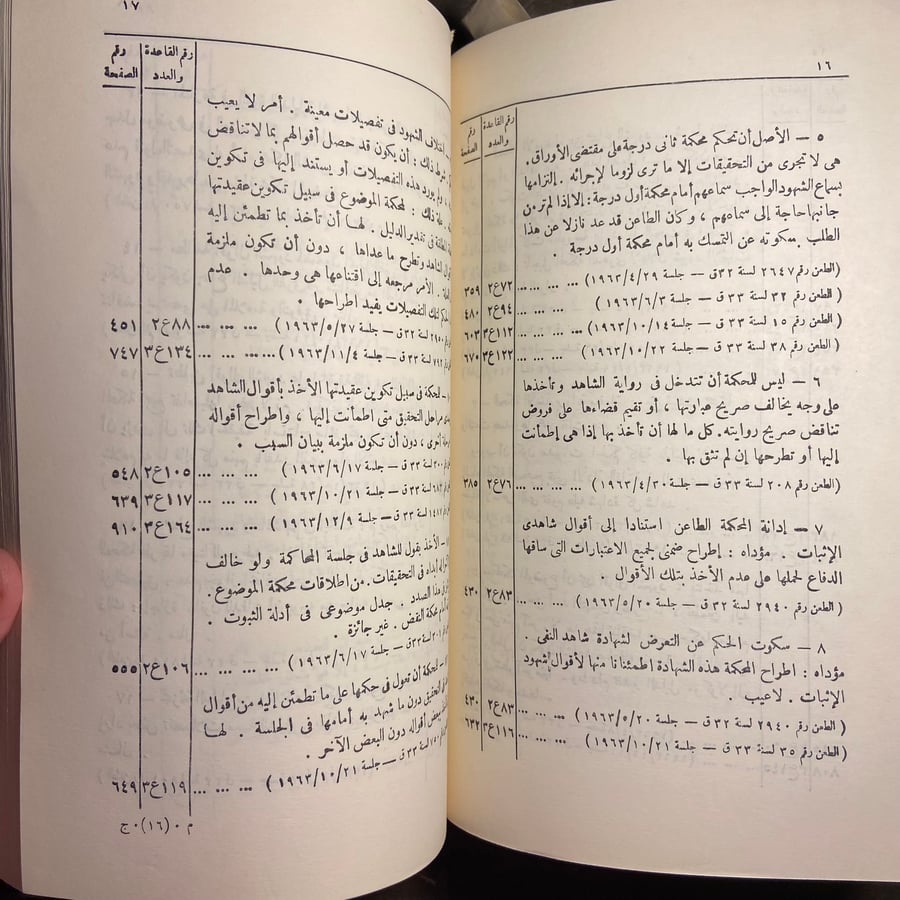 ١٦
رقم القاعدة والعدد
رقم الصفحة
٥ — الأصل أن تحكم محكمة ثانى درجة على مقتضى الأوراق .
هى لا تجرى من التحقيقات إلا ما ترى لزوما لإجرائه . إلتزامها
بسماع الشهود الواجب سماعهم أمام محكمة أول درجة : إلا إذا لم تر من
جانبها حاجة إلى سماعهم ، وكان الطاعن قد عد نازلا عن هذا
الطلب بسكوته عن التمسك به أمام محكمة أول درجة .
( الطعن رقم ٢٦٤٧ لسنة ٣٢ ق — جلسة ١٩٦٣/٤/٢٩ ) ... ... ... ٧٢ع٢ ٣٥٩
( الطعن رقم ٣٢ لسنة ٣٣ ق — جلسة ١٩٦٣/٦/٣ ) ... ... ... ٩٤ع٢ ٤٨٠
( الطعن رقم ١٥ لسنة ٣٣ ق — جلسة ١٩٦٣/١٠/١٤ ) ... ... ... ١١٢ع٣ ٦٠٣
( الطعن رقم ٣٨ لسنة ٣٣ ق — جلسة ١٩٦٣/١٠/٢٢ ) ... ... ... ١٢٢ع٣ ٦٧٠
٦ — ليس للمحكمة أن تتدخل فى رواية الشاهد وتأخذها
على وجه يخالف صريح عبارتها ، أو تقيم قضاءها على فروض
تناقض صريح روايته . كل ما لها أن تأخذ بها إذا هى إطمأنت
إليها أو تطرحها إن لم تثق بها .
( الطعن رقم ٢٠٨ لسنة ٣٣ ق — جلسة ١٩٦٣/٤/٣٠ ) ... ... ... ٧٦ع٢ ٣٨٥
٧ — إدانة المحكمة الطاعن استنادا إلى أقوال شاهدى
الإثبات . مؤداه : إطراح ضمنى لجميع الاعتبارات التى ساقها
الدفاع لحملها على عدم الأخذ بتلك الأقوال .
( الطعن رقم ٢٩٤٠ لسنة ٣٢ ق — جلسة ١٩٦٣/٥/٢٠ ) ... ... ... ٨٣ع٢ ٤٣٠
٨ — سكوت الحكم عن التعرض لشهادة شاهد النفى .
مؤداه : اطراح المحكمة هذه الشهادة اطمئنانا منها لأقوال شهود
الإثبات . لا عيب .
( الطعن رقم ٢٩٤٠ لسنة ٣٢ ق — جلسة ١٩٦٣/٥/٢٠ ) ... ... ... ٨٣ع٢ ٤٣٠
( الطعن رقم ٣٥ لسنة ٣٣ ق — جلسة ١٩٦٣/١٠/٢١ ) ... ... ... ١١٦ع٣ ٦٣٢
١٧
رقم القاعدة والعدد
رقم الصفحة
الشهود فى تفصيلات معينة . أمر لا يعيب
ذلك : أن يكون قد حصل أقوالهم بما لا تناقض
يورد هذه التفصيلات أو يستند إليها فى تكوين
ذلك : لمحكمة الموضوع فى سبيل تكوين عقيدتها
فى تقدير الدليل . لها أن تأخذ بما تطمئن إليه
الشاهد وتطرح ما عداها ، دون أن تكون ملزمة
الأمر مرجعه إلى اقتناعها هى وحدها . عدم
تلك التفصيلات يفيد اطراحها .
٢٩٥٠ لسنة ٣٢ ق — جلسة ١٩٦٣/٥/٢٧ ) ... ... ... ٨٨ع٢ ٤٥١
لسنة ٣٣ ق — جلسة ١٩٦٣/١١/٤ ) ... ... ... ١٣٤ع٣ ٧٤٧
للمحكمة فى سبيل تكوين عقيدتها الأخذ بأقوال الشاهد
مراحل التحقيق متى اطمأنت إليها ، واطراح أقواله
أخرى ، دون أن تكون ملزمة ببيان السبب .
لسنة ٣٣ ق — جلسة ١٩٦٣/٦/١٧ ) ... ... ١٠٥ع٢ ٥٤٨
لسنة ٣٣ ق — جلسة ١٩٦٣/١٠/٢١ ) ... ... ١١٧ع٣ ٦٣٩
لسنة ٣٣ ق — جلسة ١٩٦٣/١٢/٩ ) ... ... ... ١٦٤ع٣ ٩١٠
الأخذ بقول للشاهد فى جلسة المحاكمة ولو خالف
أبداه فى التحقيقات . من اطلاقات محكمة الموضوع .
هذا الصدد . جدل موضوعى فى أدلة الثبوت .
محكمة النقض . غير جائزة .
لسنة ٣٣ ق — جلسة ١٩٦٣/٦/١٧ ) ... ... ... ١٠٦ع٢ ٥٥٥
للمحكمة أن تعول فى حكمها على ما تطمئن إليه من أقوال
التحقيق دون ما شهد به أمامها فى الجلسة . لها
بعض أقواله دون البعض الآخر .
لسنة ٣٣ ق — جلسة ١٩٦٣/١٠/٢١ ) ... ... ... ١١٩ع٣ ٦٤٩
م . (١٦) . ج